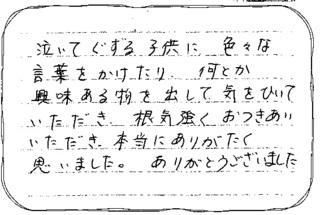 泣いてぐずる子供に 色々な
言葉をかけたり 何とか
興味ある物を出して気をひいて
いただき 根気強くおつきあい
いただき 本当にありがたく
思いました。 ありがとうございました